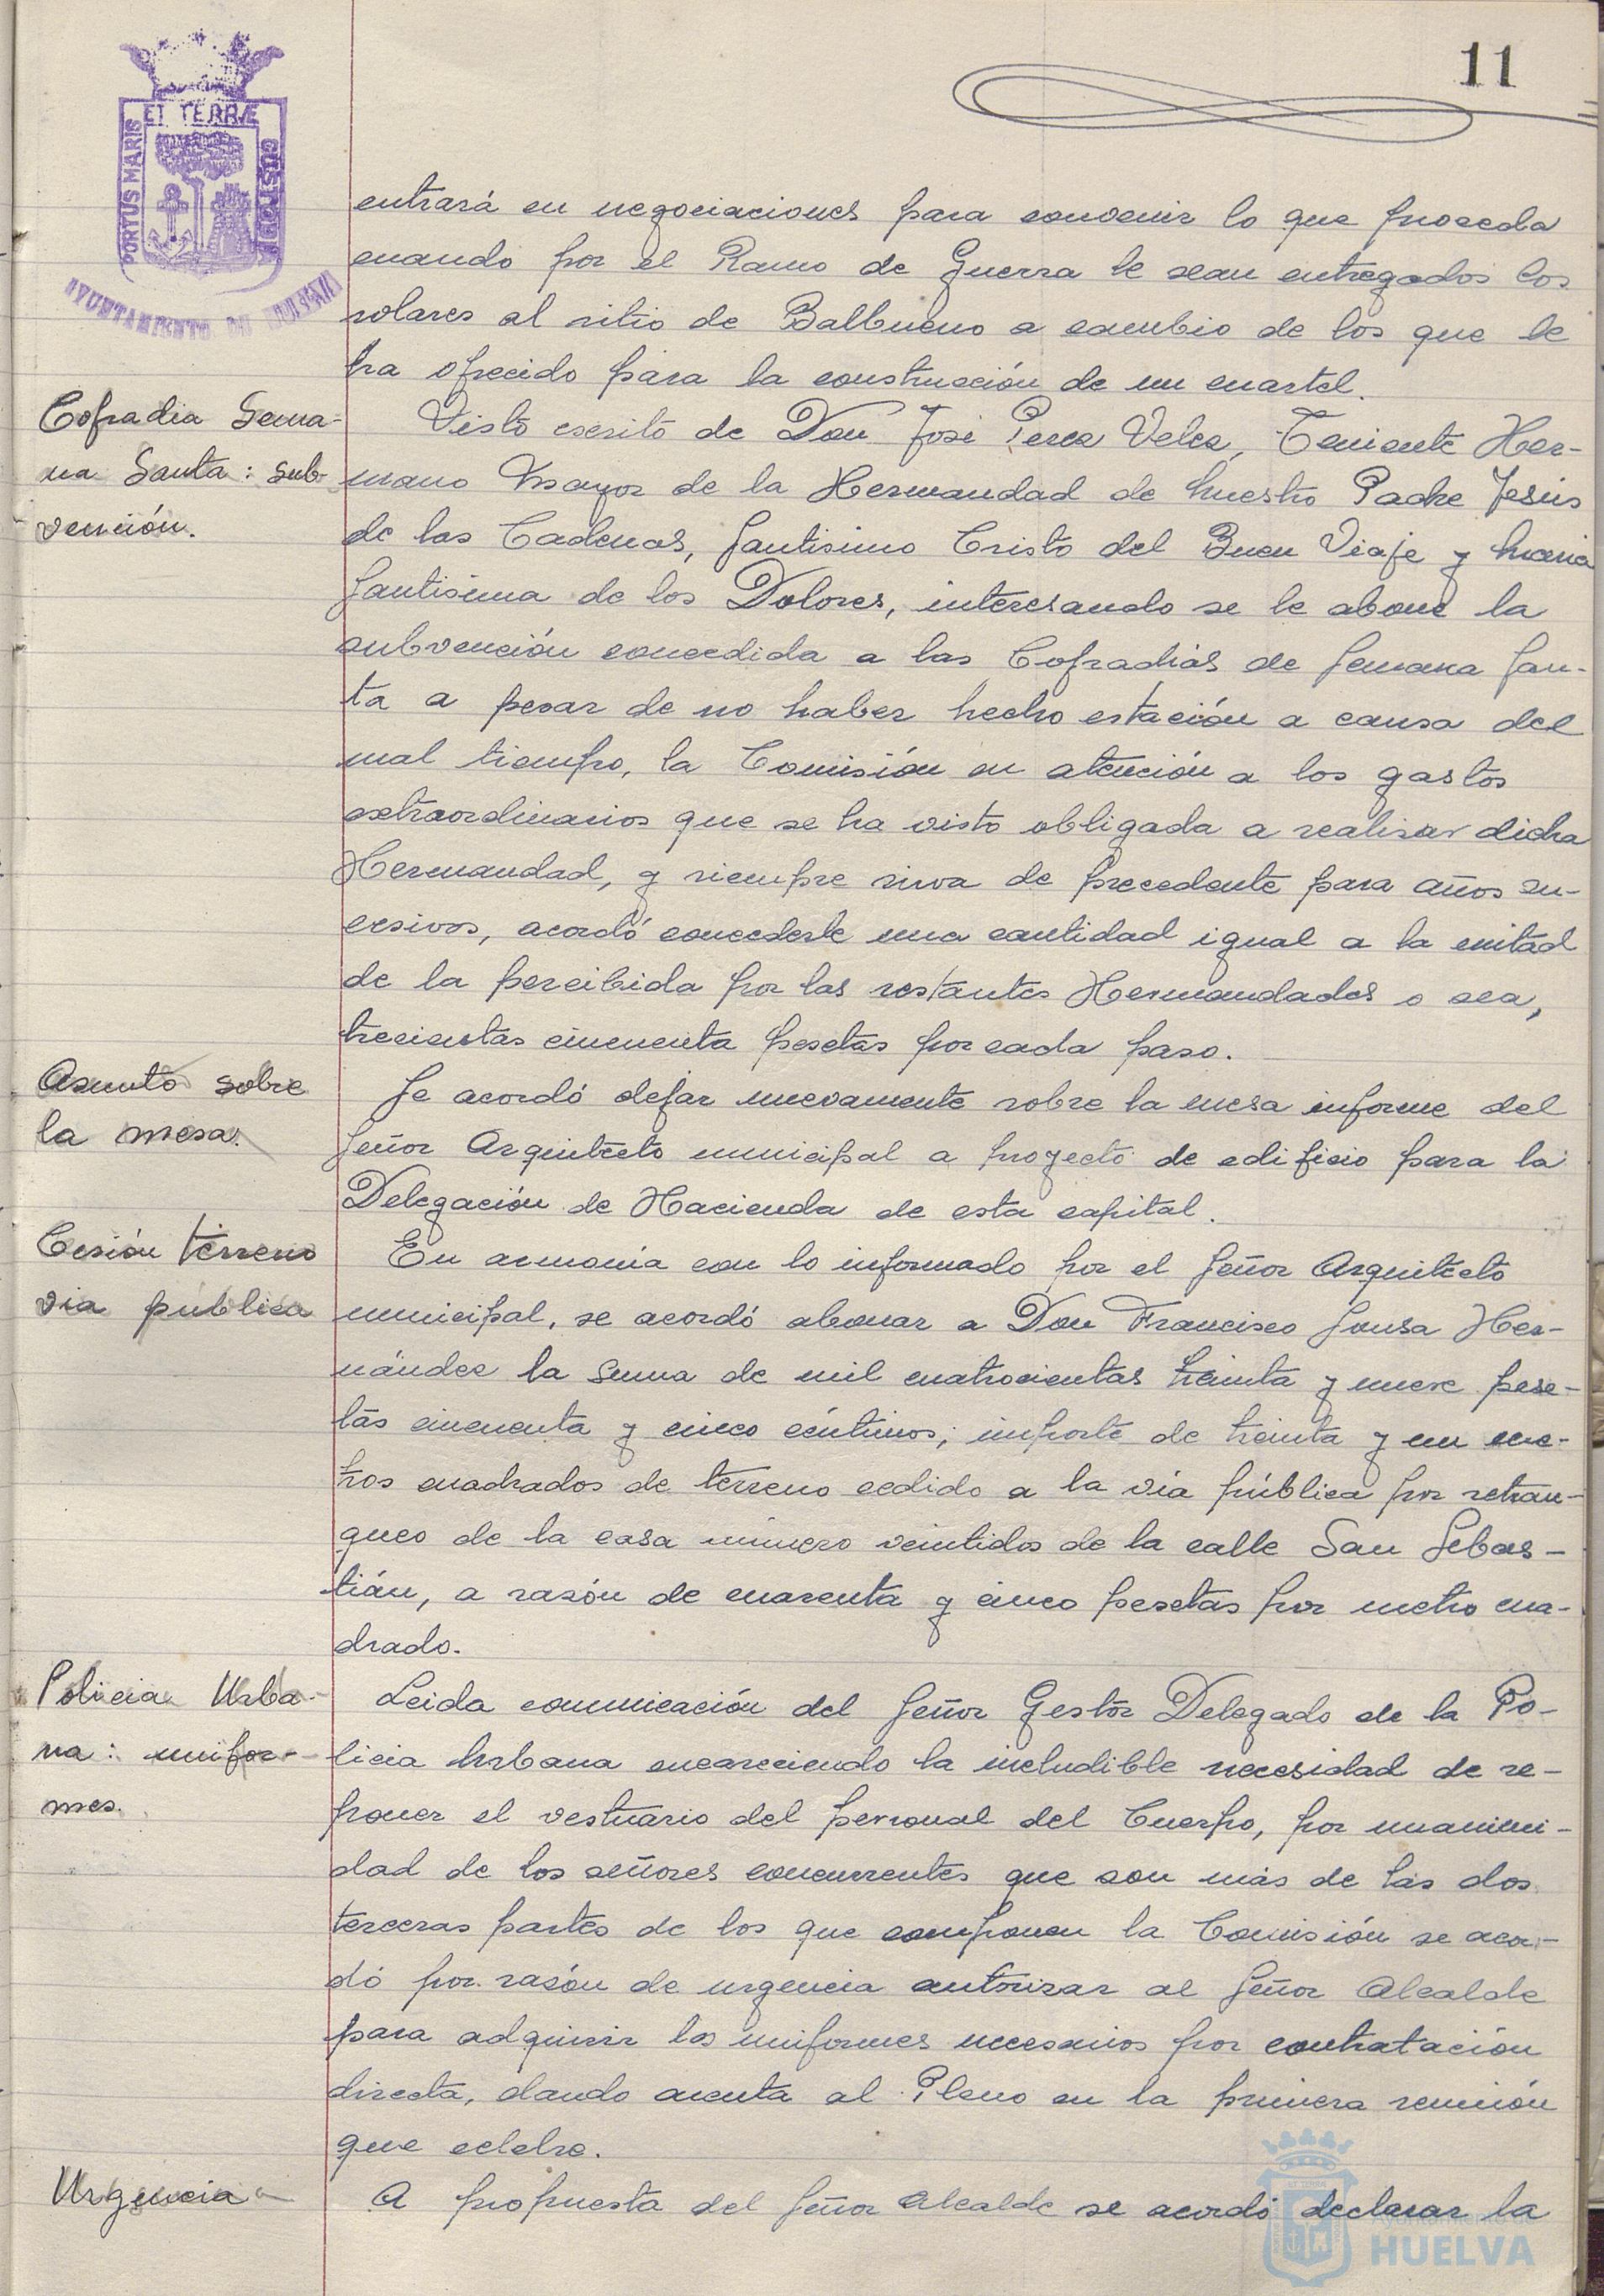 11
ET TERRÆ
PORTUS MARIS
CUSTODIA
AYUNTAMIENTO DE HUELVA
entrará en negociaciones para convenir lo que proceda
cuando por el Ramo de Guerra le sean entregados los
solares al sitio de Balbueno a cambio de los que le
ha ofrecido para la construcción de un cuartel.
Cofradia Sema-
na Santa: sub-
vención.
Visto escrito de Don José Perea Velea, Teniente Her-
mano Mayor de la Hermandad de Nuestro Padre Jesús
de las Cadenas, Santisimo Cristo del Buen Viaje y Maria
Santisima de los Dolores, interesando se le abone la
subvención concedida a las Cofradias de Semana San-
ta a pesar de no haber hecho estación a causa del
mal tiempo, la Comisión en atención a los gastos
extraordinarios que se ha visto obligada a realizar dicha
Hermandad, y siempre sirva de precedente para años su-
cesivos, acordó concederle una cantidad igual a la mitad
de la percibida por las restantes Hermandades o sea,
trecientas cincuenta pesetas por cada paso.
Asunto sobre
la mesa.
Se acordó dejar nuevamente sobre la mesa informe del
Señor Arquitecto municipal a proyecto de edificio para la
Delegación de Hacienda de esta capital.
Cesión terreno
via publica
En armonia con lo informado por el Señor Arquitecto
municipal, se acordó abonar a Don Francisco Sousa Her-
nández la suma de mil cuatrocientas treinta y nueve pese-
tas cincuenta y cinco céntimos; importe de treinta y un me-
tros cuadrados de terreno cedido a la via pública por retran-
queo de la casa número veintidos de la calle San Sebas-
tián, a razón de cuarenta y cinco pesetas por metro cua-
drado.
Policia Urba-
na: unifor-
mes.
Leida comunicación del Señor Gestor Delegado de la Po-
licia Urbana encareciendo la ineludible necesidad de re-
poner el vestuario del personal del Cuerpo, por unanimi-
dad de los señores concurrentes que son más de las dos
terceras partes de los que componen la Comisión se acor-
dó por razón de urgencia autorizar al Señor Alcalde
para adquirir los uniformes necesarios por contratación
directa, dando cuenta al Pleno en la primera reunión
que celebre.
Urgencia
A propuesta del Señor Alcalde se acordó declarar la
HUELVA